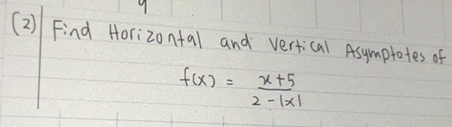 (2) Find Horizontal and Vertical Asymptotes of
f(x) = x+5 / 2-|x|